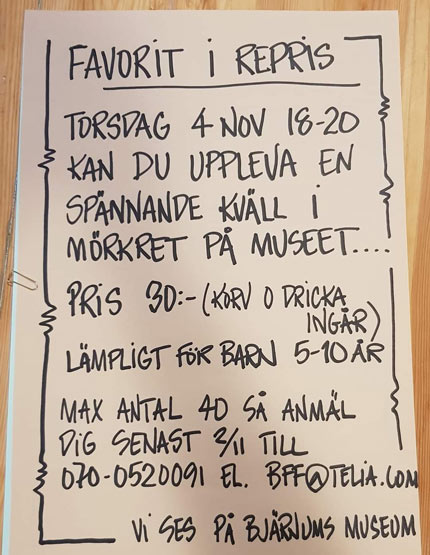 FAVORIT i REPRIS
TORSDAG 4 NOV 18-20
KAN DU UPPLEVA EN
SPÄNNANDE KVÄLL I
MÖRKRET PÅ MUSEET....
PRIS 30:- (KORV O DRICKA
INGÅR)
LÄMPLIGT FÖR BARN 5-10 ÅR
MAX ANTAL 40 SÅ ANMÄL
DIG SENAST 2/11 TILL
070-0520091 EL. BFF@TELIA.COM
Vi SES PÅ BJÄRNUMS MUSEUM